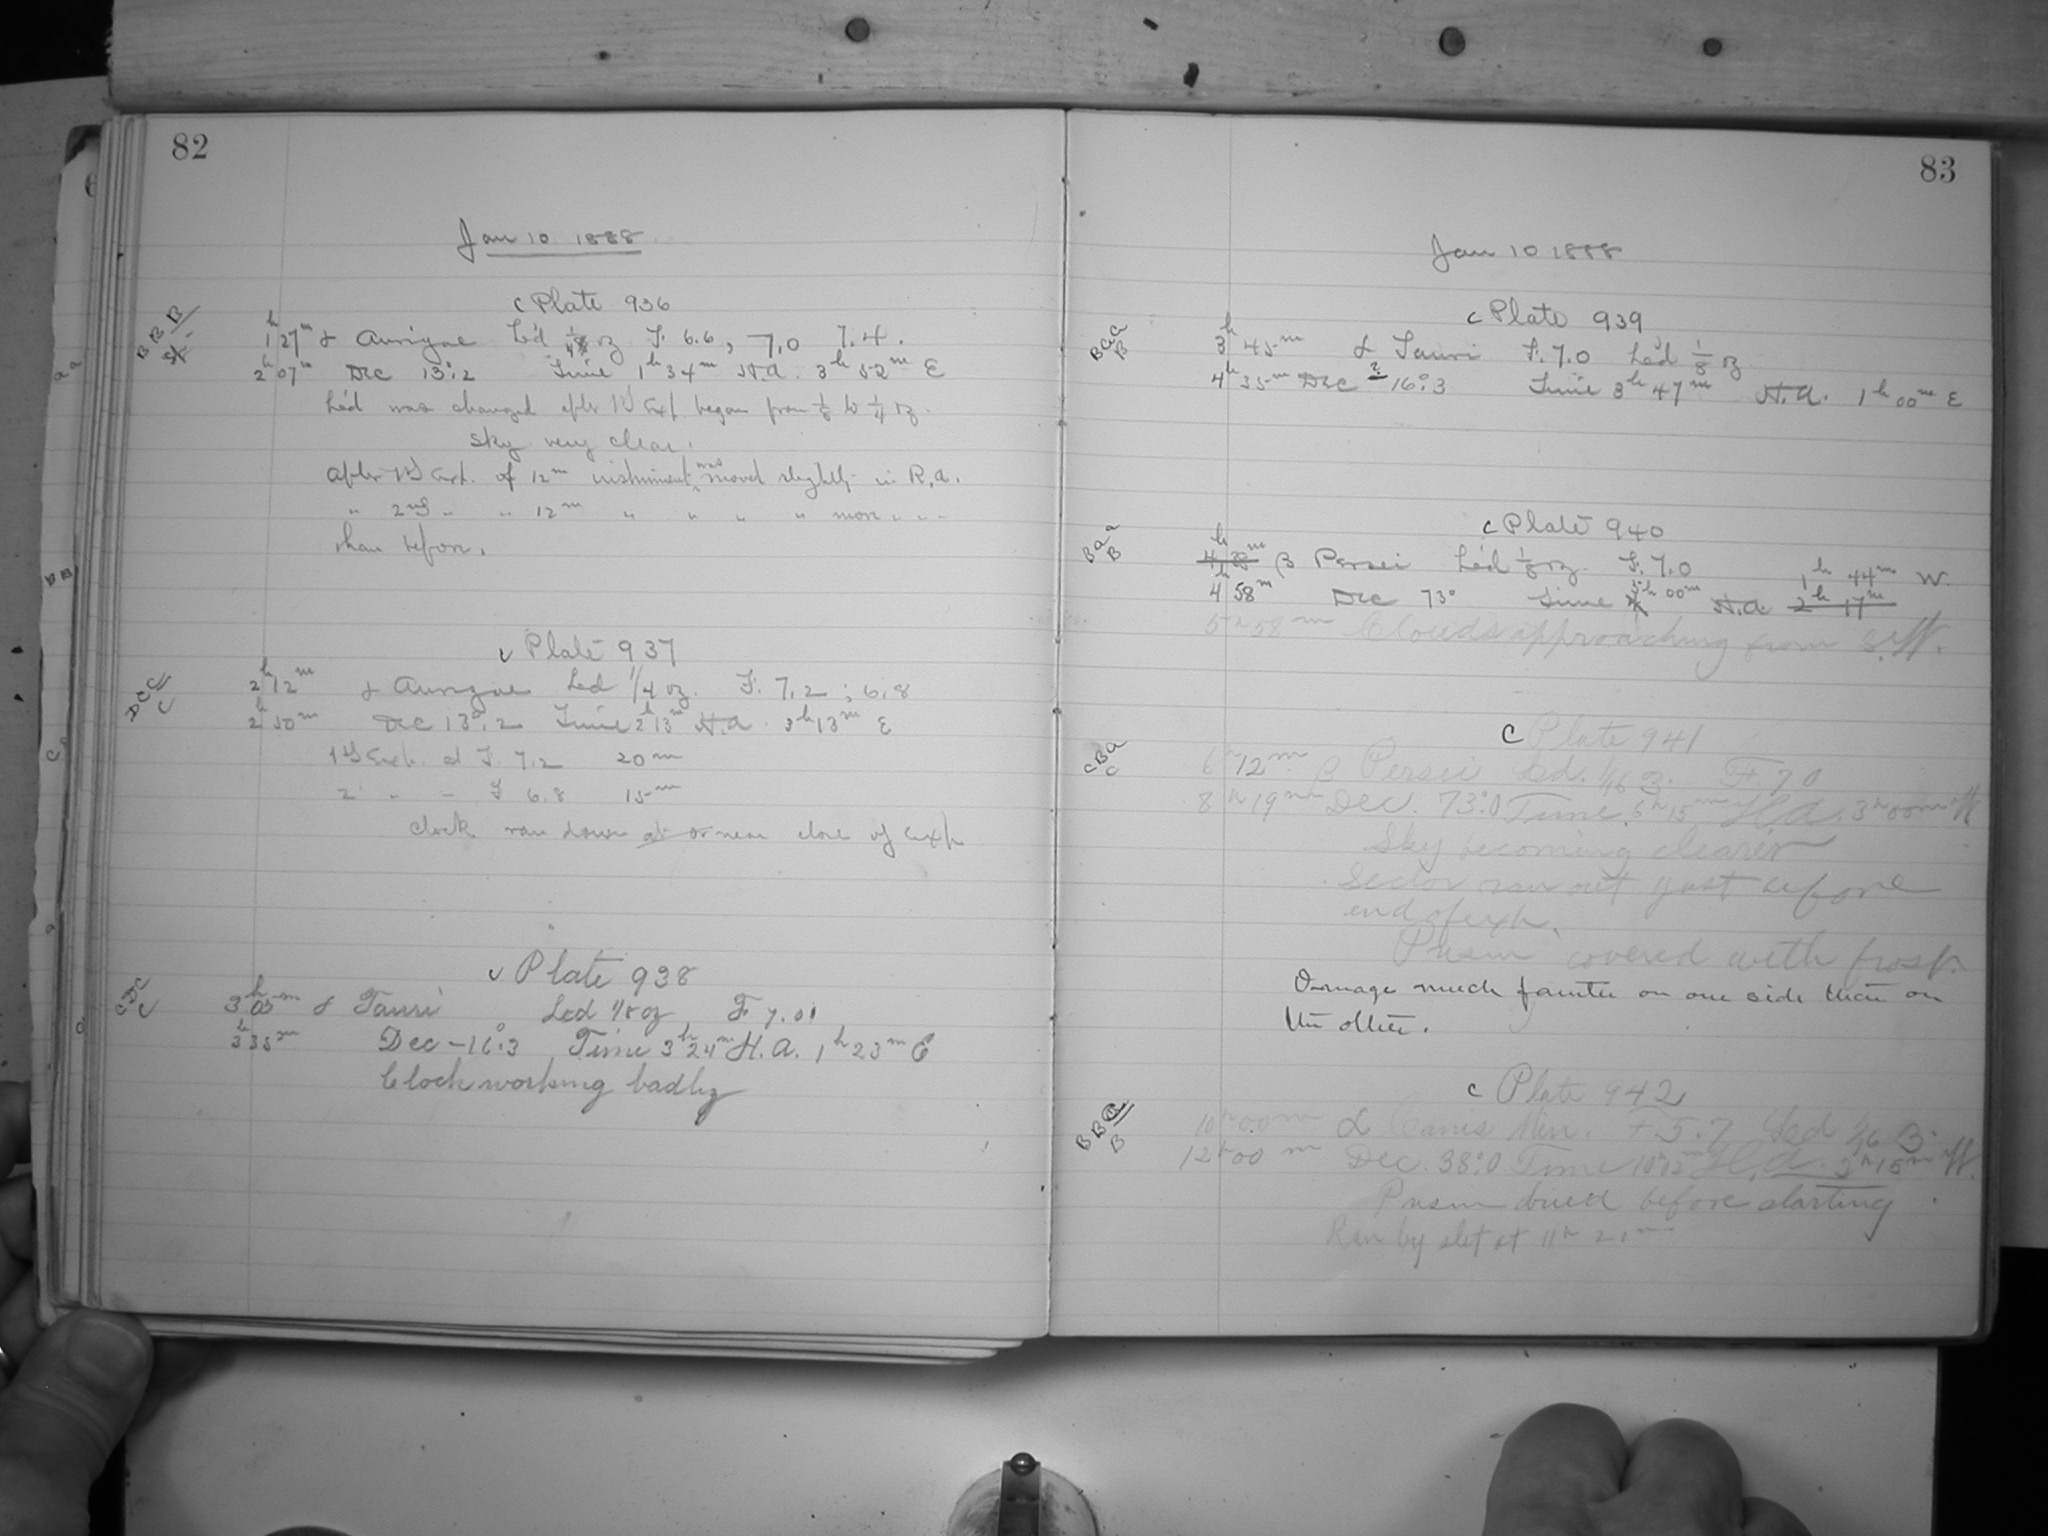 82
Jan 10 1888
c Plate 936
B B B
1h 27m α Aurigae Led 1/4 oz F. 6.6, 7.0 7.4.
2h 07m Dec 13°.2 Time 1h 34m H.A. 3h 52m E
Led was changed after 1st Exp. began from 1/8 to 1/4 oz.
Sky very clear.
After 1st Exp. of 12m instrument was moved slightly in R.A.
" 2nd " " 12m " " " " more " " "
than before.
c Plate 937
D C C C
2h 12m α Aurigae Led 1/4 oz. F. 7.2; 6.8
2h 50m Dec 13°.2 Time 2h 13m H.A. 3h 13m E
1st Exp. at F. 7.2 20m
2 " " F 6.8 15m
Clock ran down at or near close of Exp
c Plate 938
C B C C
3h 05m α Tauri Led 1/8 oz F 7.0
3h 35m Dec -16°.3 Time 3h 24m H.A. 1h 23m E
Clock working badly
83
Jan 10 1888
c Plate 939
B a a B
3h 45m α Tauri F. 7.0 Led 1/8 oz
4h 35m Dec ? 16°.3 Time 3h 47m H.A. 1h 00m E
c Plate 940
B a a B
4h 38m β Persei Led 1/8 oz. F. 7.0 1h 44m W.
4h 58m Dec 73° Time 5h 00m H.A. 2h 17m
5h 58m Clouds approaching from S.W.
c Plate 941
C B a C
6h 12m β Persei Led. 1/16 3. F 7.0
8h 19m Dec. 73°.0 Time. 6h 15m H.A. 3h 00m W
Sky becoming clearer
Sector ran out just before
end of exp.
Prism covered with frost.
Image much fainter on one side than on
the other.
c Plate 942
B B B B
10h 00m α Canis Min. F 5.7 Led 1/16 3.
12h 00m Dec. 38°.0 Time 10h 02m H.A. 2h 15m W.
Prism dried before starting
Ran by slit at 11h